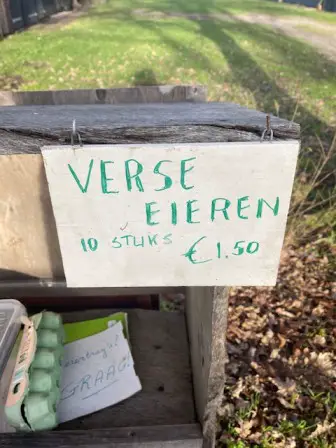 VERSE
EIEREN
10 STUKS
€1.50
GRAAG!